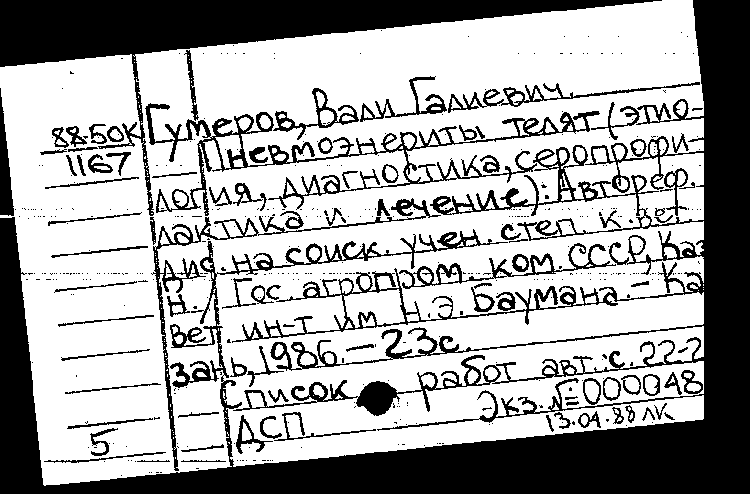 88-50К
1167
Гумеров, Вали Галиевич.
Пневмоэнериты телят (этио-
логия, диагностика, серопрофи-
лактика и лечение): Автореф.
дис. на соиск. учен. степ. к. вет.
н. / Гос. агропром. ком. СССР, Каз
вет. ин-т им. Н.Э. Баумана. – Ка
зань, 1986. – 23с.
Список работ авт.: с. 22-2
ДСП. Экз. № 000048
13.04.88 ЛК
5